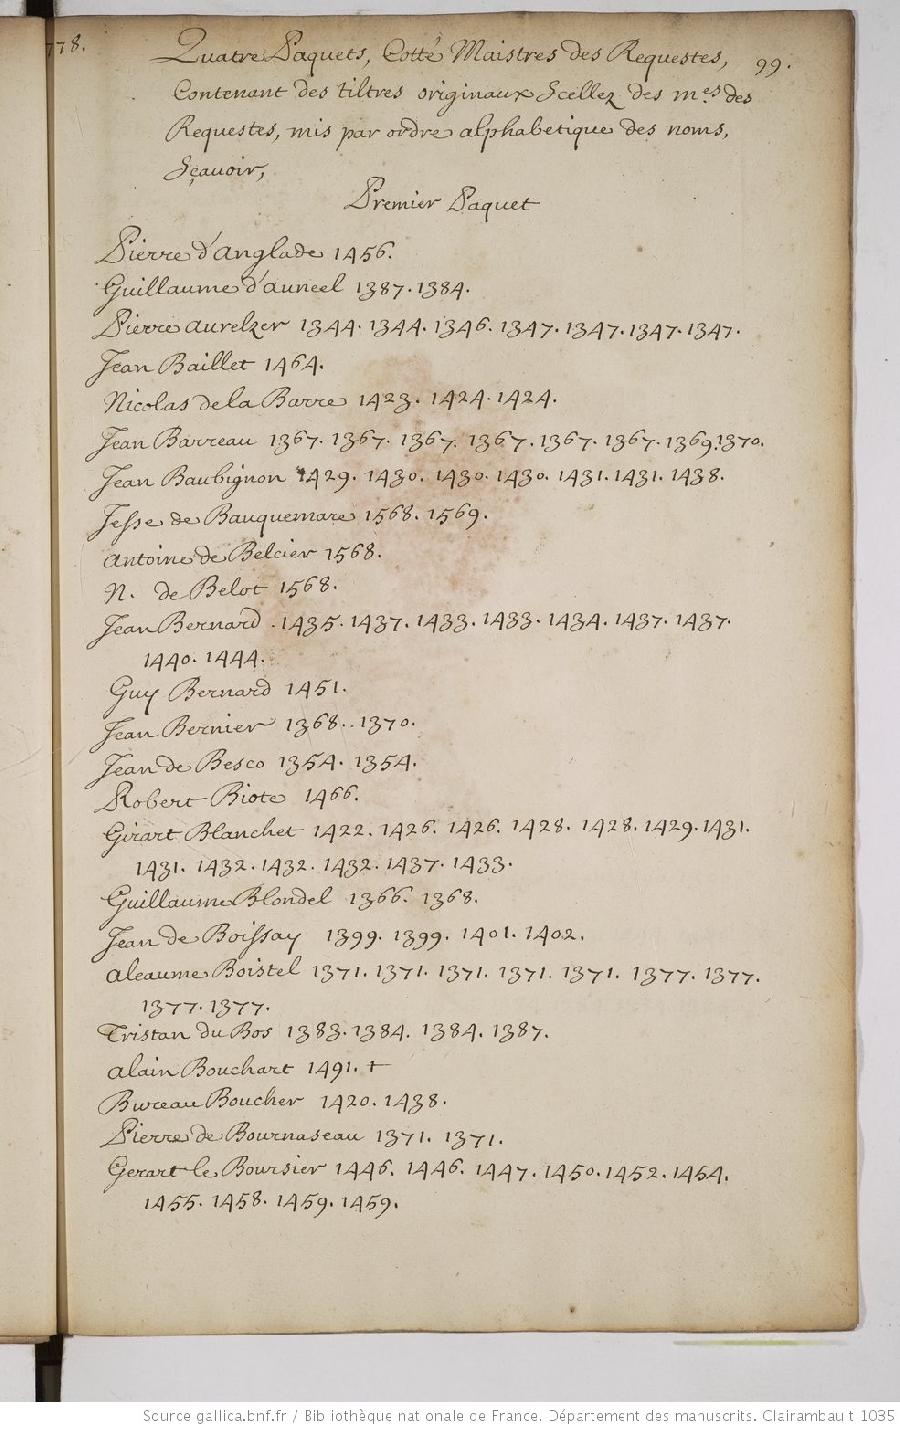 778.
Quatre Paquets, Cotté Maistres des Requestes,
99.
Contenant des tiltres originaux Scellez des m.es des
Requestes, mis par ordre alphabetique des noms,
Sçavoir,
Premier Paquet
Pierre d'anglade 1456.
Guillaume d'auneel 1387. 1384.
Pierre aurelzer 1344. 1344. 1346. 1347. 1347. 1347. 1347.
Jean Baillet 1464.
Nicolas de la Barre 1423. 1424. 1424.
Jean Barreau 1367. 1367. 1367. 1367. 1367. 1367. 1369. 1370.
Jean Baubignon 1429. 1430. 1430. 1430. 1431. 1431. 1438.
Jesse de Bauquemare 1568. 1569.
antoine de Belcier 1568.
N. de Belot 1568.
Jean Bernard. 1435. 1437. 1433. 1433. 1434. 1437. 1437.
1440. 1444.
Guy Bernard 1451.
Jean Bernier 1368. 1370.
Jean de Besco 1354. 1354.
Robert Biote 1466.
Girart Blanchet 1422. 1426. 1426. 1428. 1428. 1429. 1431.
1431. 1432. 1432. 1432. 1437. 1433.
Guillaume Blondel 1366. 1368.
Jean de Boissay 1399. 1399. 1401. 1402.
aleaume Boistel 1371. 1371. 1371. 1371. 1371. 1377. 1377.
1377. 1377.
Tristan du Bos 1383. 1384. 1384. 1387.
alain Bouchart 1491. +
Bureau Boucher 1420. 1438.
Pierre de Bournaseau 1371. 1371.
Gerart le Boursier 1446. 1446. 1447. 1450. 1452. 1454.
1455. 1458. 1459. 1459.
Source gallica.bnf.fr / Bibliothèque nationale de France. Département des manuscrits. Clairambault 1035